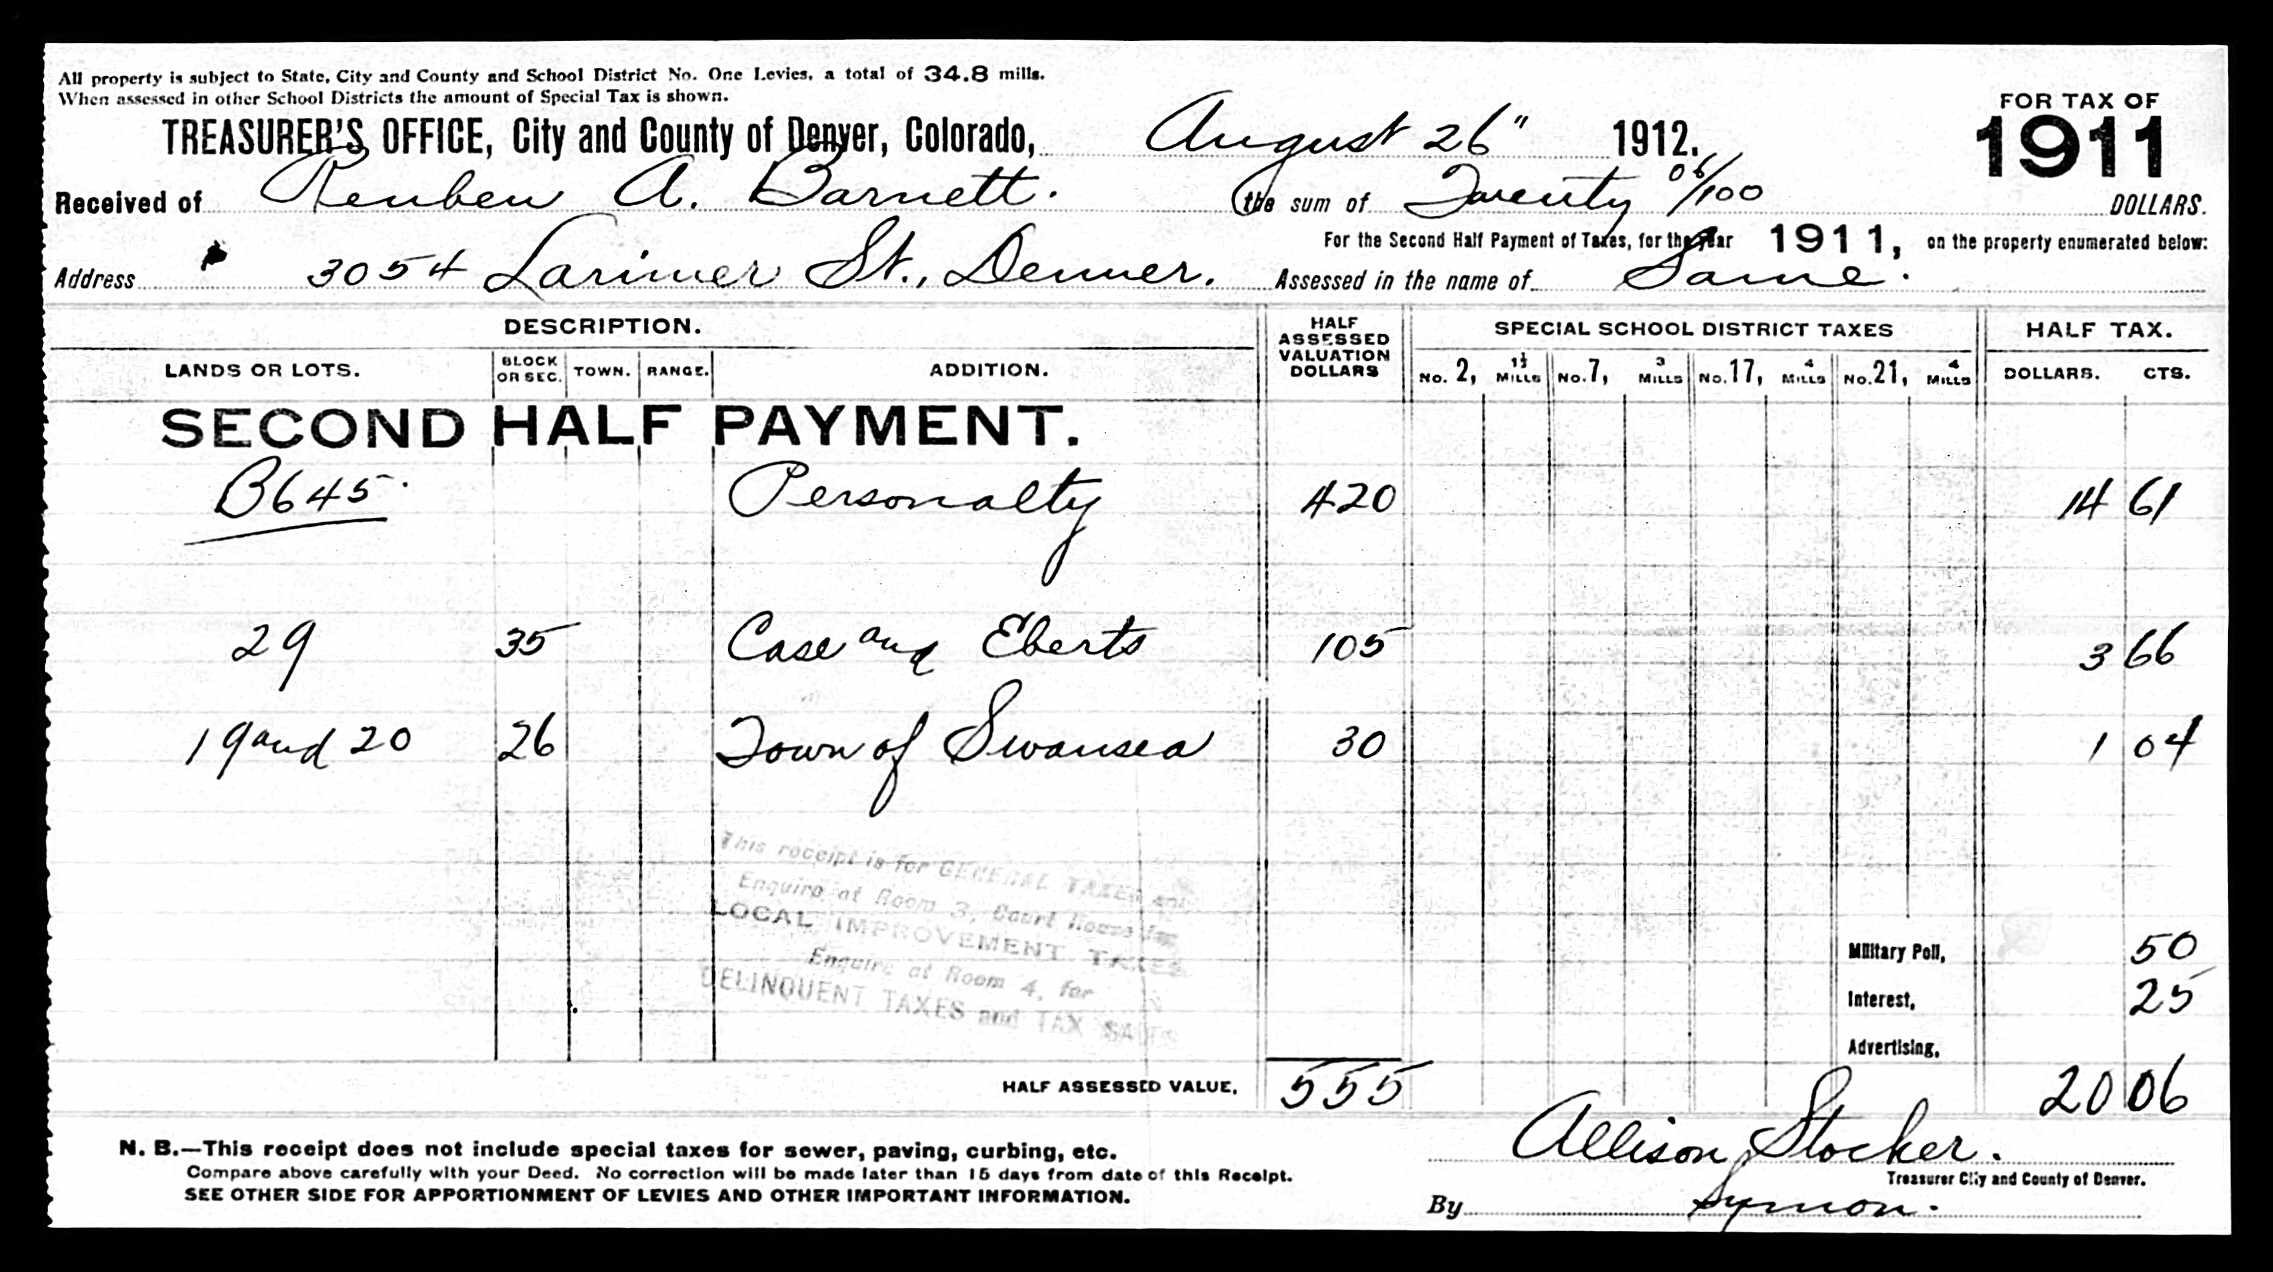 All property is subject to State, City and County and School District No. One Levies, a total of 34.8 mills.
When assessed in other School Districts the amount of Special Tax is shown.
FOR TAX OF
1911
TREASURER'S OFFICE, City and County of Denver, Colorado, August 26" 1912.
Received of Reuben A. Barnett. the sum of Twenty 06/100 DOLLARS.
For the Second Half Payment of Taxes, for the year 1911, on the property enumerated below:
Address 3054 Larimer St., Denver. Assessed in the name of Same.
DESCRIPTION. HALF ASSESSED VALUATION DOLLARS SPECIAL SCHOOL DISTRICT TAXES HALF TAX.
LANDS OR LOTS. BLOCK OR SEC. TOWN. RANGE. ADDITION. No. 2, 1½ MILLS No. 7, 3 MILLS No. 17, 4 MILLS No. 21, 4 MILLS DOLLARS. CTS.
SECOND HALF PAYMENT.
B645. Personalty 420 14 61
29 35 Case and Eberts 105 3 66
19 and 20 26 Town of Swansea 30 1 04
This receipt is for GENERAL TAXES only
Enquire at Room 3, Court House for
LOCAL IMPROVEMENT TAXES
Enquire at Room 4, for
DELINQUENT TAXES and TAX SALES
Military Poll, 50
Interest, 25
Advertising,
HALF ASSESSED VALUE, 555 20 06
N. B.—This receipt does not include special taxes for sewer, paving, curbing, etc.
Compare above carefully with your Deed. No correction will be made later than 15 days from date of this Receipt.
SEE OTHER SIDE FOR APPORTIONMENT OF LEVIES AND OTHER IMPORTANT INFORMATION.
Allison Stocker.
Treasurer City and County of Denver.
By Symon.